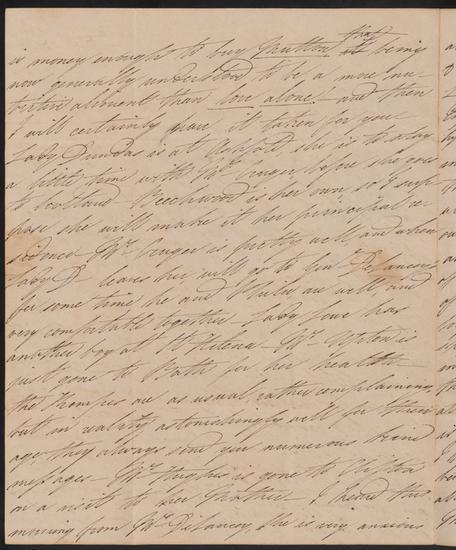 is money enough to buy Mutton that being
now generally understood to be a more nu-
tritive aliment than love alone! and then
I will certainly have it taken for you
Lady Dundas is at she is to stay
a little time with Mrs Cruger before she goes
to Scotland Beechwood is her own so I sup-
pose she will make it her principal re-
sidence Mrs Cruger is pretty well, and when
Lady D— leaves her will go to Genl Delancey
for some time he and are well, and
very comfortable together — Lady Lowe has
another boy at St Helena — Mrs Upton is
just gone to Bath for her health —
the are as usual, rather complaining,
but in reality astonishingly well for their
age, they always send you numerous kind
messages — Mrs Hughes is gone to Clifton
on a visit to her Mother — I heard this
morning from Mrs Delancey, she is very anxious